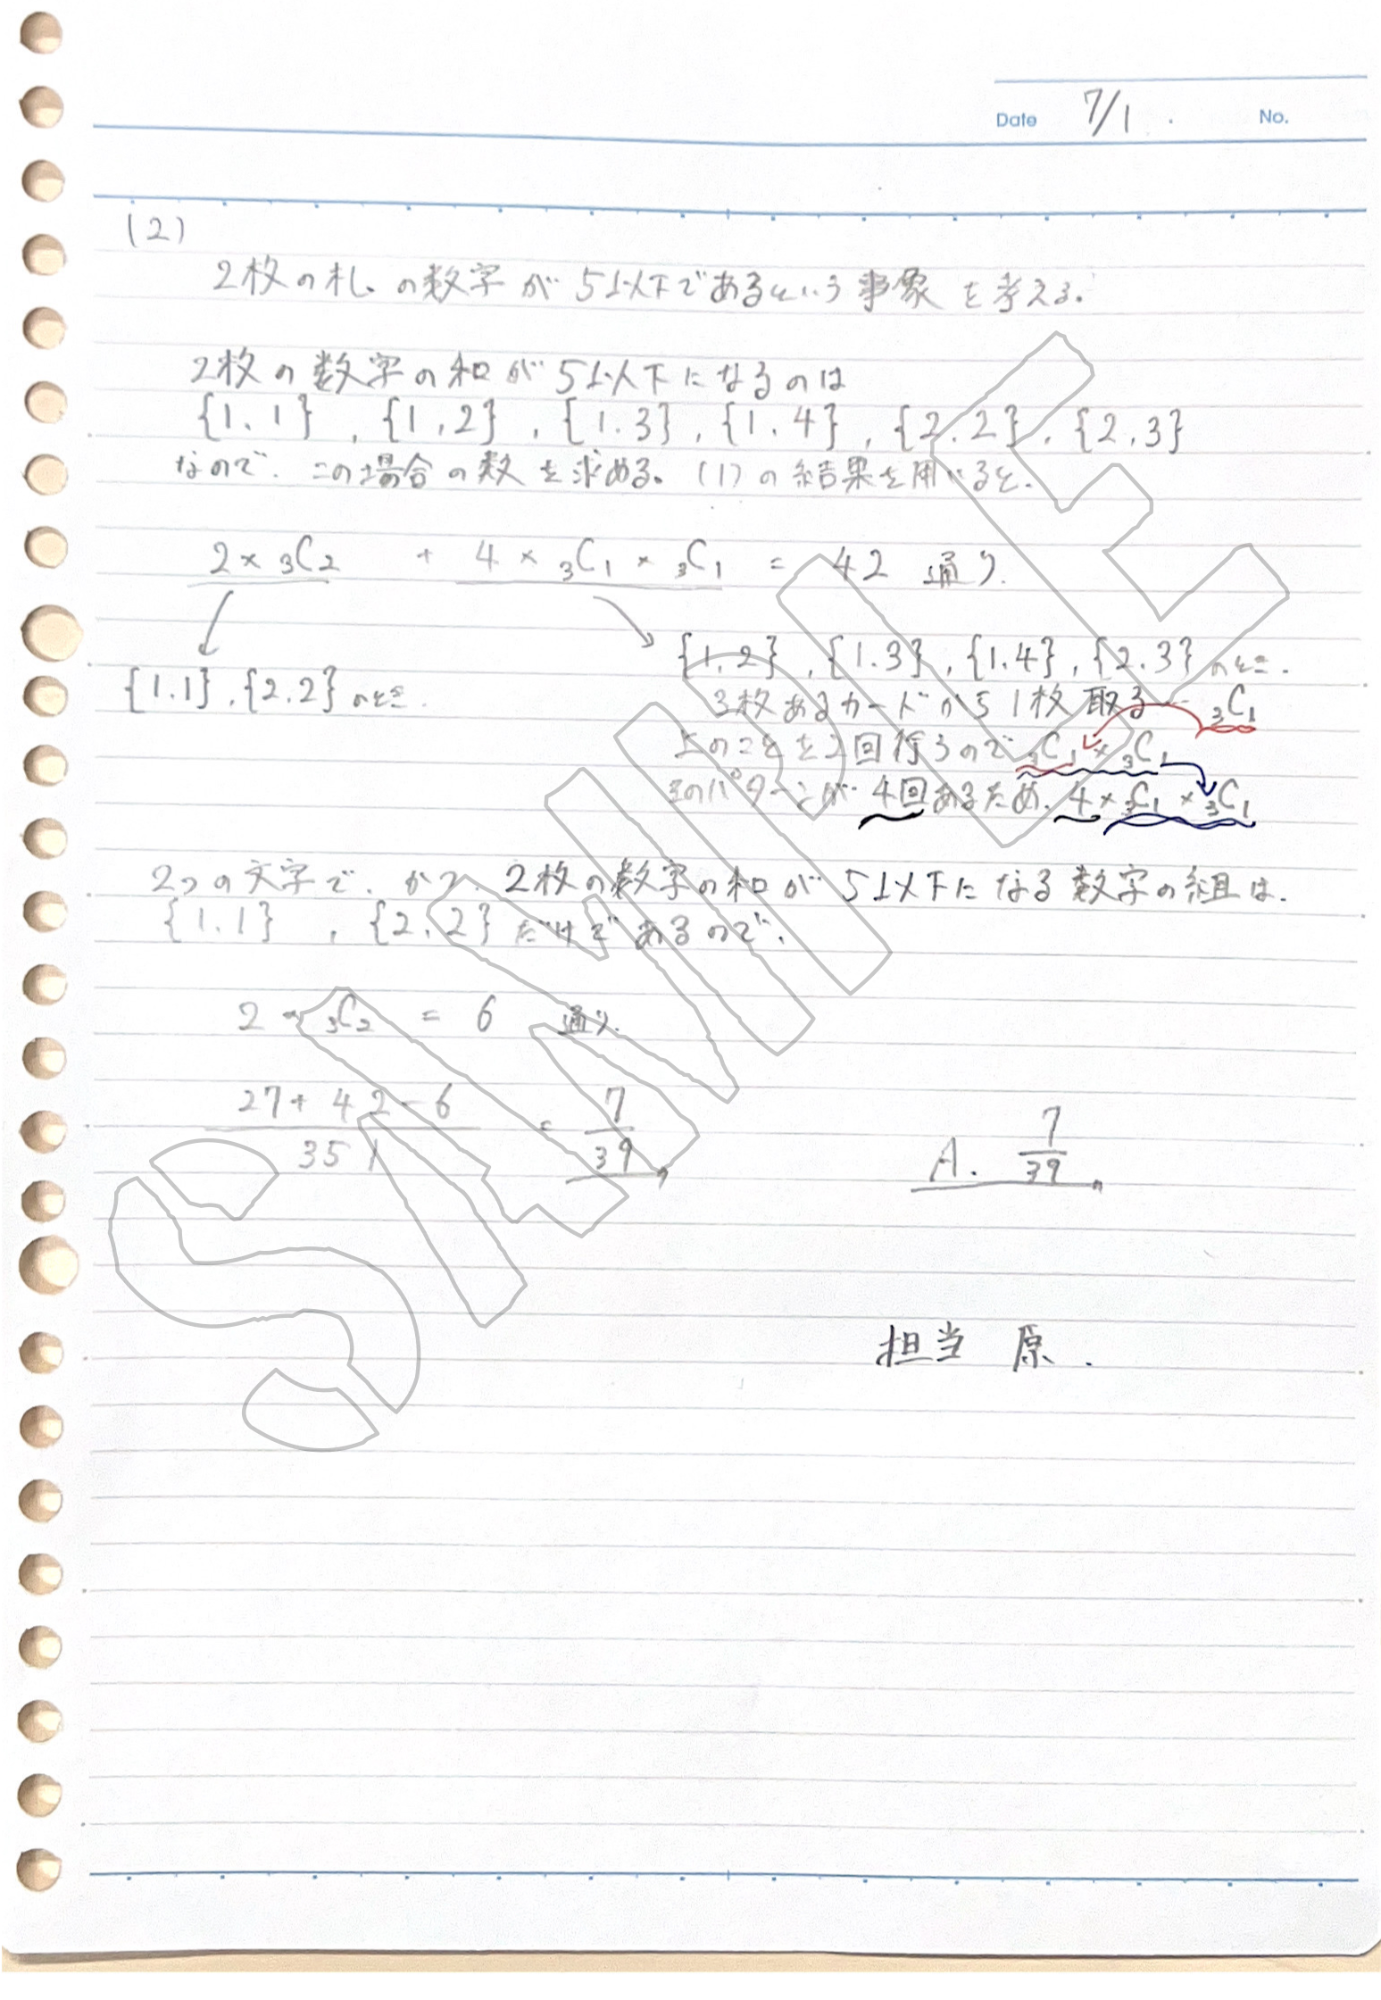 Date 7/1 . No.
(2)
2枚の札の数字が5以下であるという事象を考える。
2枚の数字の和が5以下になるのは
{1.1} , {1,2} , {1.3} , {1.4} , {2.2} , {2,3}
なので、この場合の数を求める。(1)の結果を用いると、
2 × ₃C₂ + 4 × ₃C₁ × ₃C₁ = 42 通り.
{1,2} , {1.3} , {1.4} , {2.3} のとき.
{1.1} , {2.2} のとき.
3枚あるカードから1枚取る → ₃C₁
上のことを2回行うので ₃C₁ × ₃C₁
このパターンが 4回あるため. 4 × ₃C₁ × ₃C₁
2つの文字で、かつ、2枚の数字の和が5以下になる数字の組は、
{1.1} , {2.2} だけであるので、
2 × ₃C₂ = 6 通り.
27 + 42 - 6 / 351 = 7/39
A. 7/39
担当 原 .
SIMMIYLE